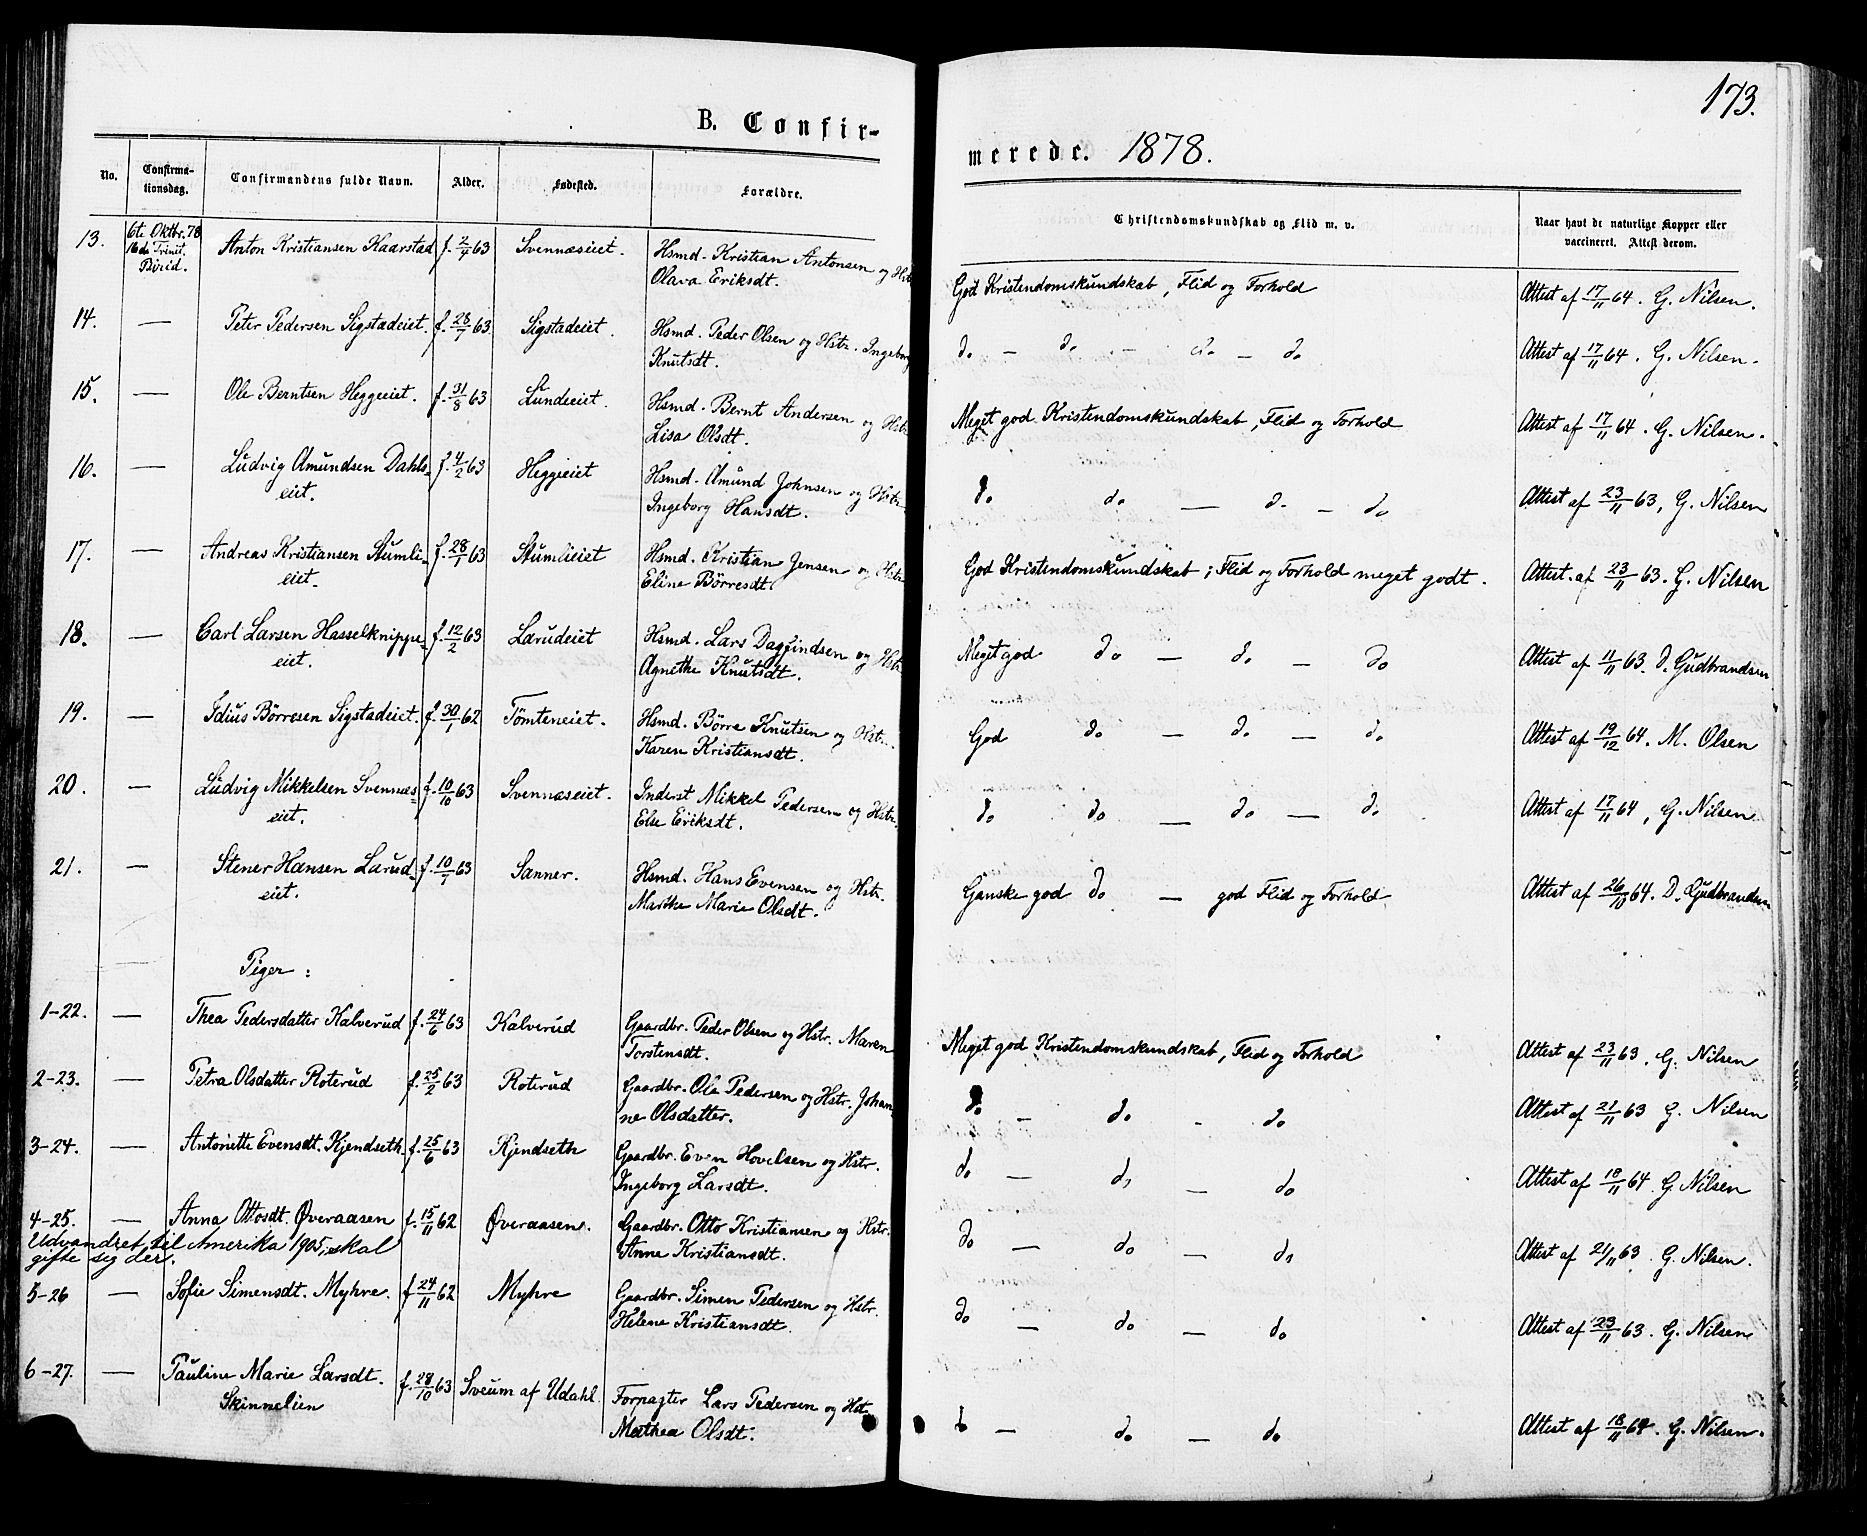 173.
B. Confir-
merede. 1878.
No. Confirma-tionsdag. Confirmandens fulde Navn. Alder. Fødested. Forældre. Christendomskundskab og Flid m. v. Naar havt de naturlige Kopper eller vaccineret. Attest derom.
13. 6te Oktbr. 78 16de Trinit. Birid. Anton Kristiansen Kaarstad f. 2/7 63 Svennæseiet. Hsmd. Kristian Antonsen og Hstr.
Olava Eriksdt. God Kristendomskundskab, Flid og Forhold Attest af 17/11 64. G. Nilsen.
14. — Peter Pedersen Sigstadeiet. f. 28/7 63 Sigstadeiet. Hsmd. Peder Olsen og Hstr. Ingeborg
Knutsdt. do — do — do — do Attest af 17/11 64. G. Nilsen.
15. — Ole Berntsen Heggeeiet. f. 31/8 63 Lundeeiet. Hsmd. Bernt Andersen og Hstr.
Lisa Olsdt. Meget god Kristendomskundskab, Flid og Forhold Attest af 17/11 64. G. Nilsen.
16. — Ludvig Amundsen Dahls- f. 4/2 63 Heggeeiet Hsmd. Amund Johnsen og Hstr.
eiet. Ingeborg Hansdt. do do — do — do Attest af 23/11 63, G. Nilsen
17. — Andreas Kristiansen Stumli- f. 28/1 63 Stumlieiet Hsmd. Kristian Jensen og Hstr.
eiet. Eline Börresdt. God Kristendomskundskab; Flid og Forhold meget godt. Attest af 23/11 63. G. Nilsen
18. — Carl Larsen Hasselknippe- f. 12/2 63 Larudeiet Hsmd. Lars Dagfindsen og Hstr.
eiet. Agnethe Knutsdt. Meget god do — do — do Attest af 11/11 63. D. Gudbrandsen
19. — Idius Börresen Sigstadeiet. f. 30/1 62 Tömteneiet. Hsmd. Börre Knutsen og Hstr.
Karen Kristiansdt. God do — do — do Attest af 19/12 64. M. Olsen
20. — Ludvig Mikkelsen Svennæs- f. 10/10 63 Svennæseiet. Inderst Mikkel Pedersen og Hstr.
eiet. Else Eriksdt. do do — do — do Attest af 17/11 64, G. Nilsen
21. — Stener Hansen Larud- f. 10/7 63 Sanner. Hsmd. Hans Evensen og Hstr.
eiet. Marthe Marie Olsdt. Ganske god do — god Flid og Forhold Attest af 26/10 64. D. Gudbrandsen
Piger:
1-22. — Thea Pedersdatter Kalverud f. 24/6 63 Kalverud Gaardbr. Peder Olsen og Hstr. Maren
Torstensdt. Meget god Kristendomskundskab, Flid og Forhold Attest af 23/11 63. G. Nilsen
2-23. — Petra Olsdatter Roterud f. 25/2 63 Roterud Gaardbr. Ole Pedersen og Hstr. Johan
ne Olsdatter. do — do - do Attest af 21/11 63 G. Nilsen
3-24. — Antonette Evensdt. Kjendseth f. 25/6 63 Kjendseth Gaardbr. Even Hovelsen og Hstr.
Ingeborg Larsdt. do — do — do Attest af 18/11 64. G. Nilsen
4-25. — Anna Ottosdt. Øveraasen f. 15/11 62 Øveraasen. Gaardbr. Otto Kristiansen og Hstr.
Udvandret til Amerika 1905, skal
gifte sig der. Anne Kristiansdt. do — do — do Attest af 21/11 63. G. Nilsen.
5-26 — Sofie Simensdt. Myhre. f. 24/11 62 Myhre Gaardbr. Simen Pedersen og Hstr.
Helene Kristiansdt. do — do — do Attest af 23/11 63. G. Nilsen
6-27. — Pauline Marie Larsdt. f. 28/10 63 Sveum af Udahl. Forpagter Lars Pedersen og Hst
Skinnelien Mathea Olsdt. do — do — do Attest af 18/11 64. G. Nilsen.